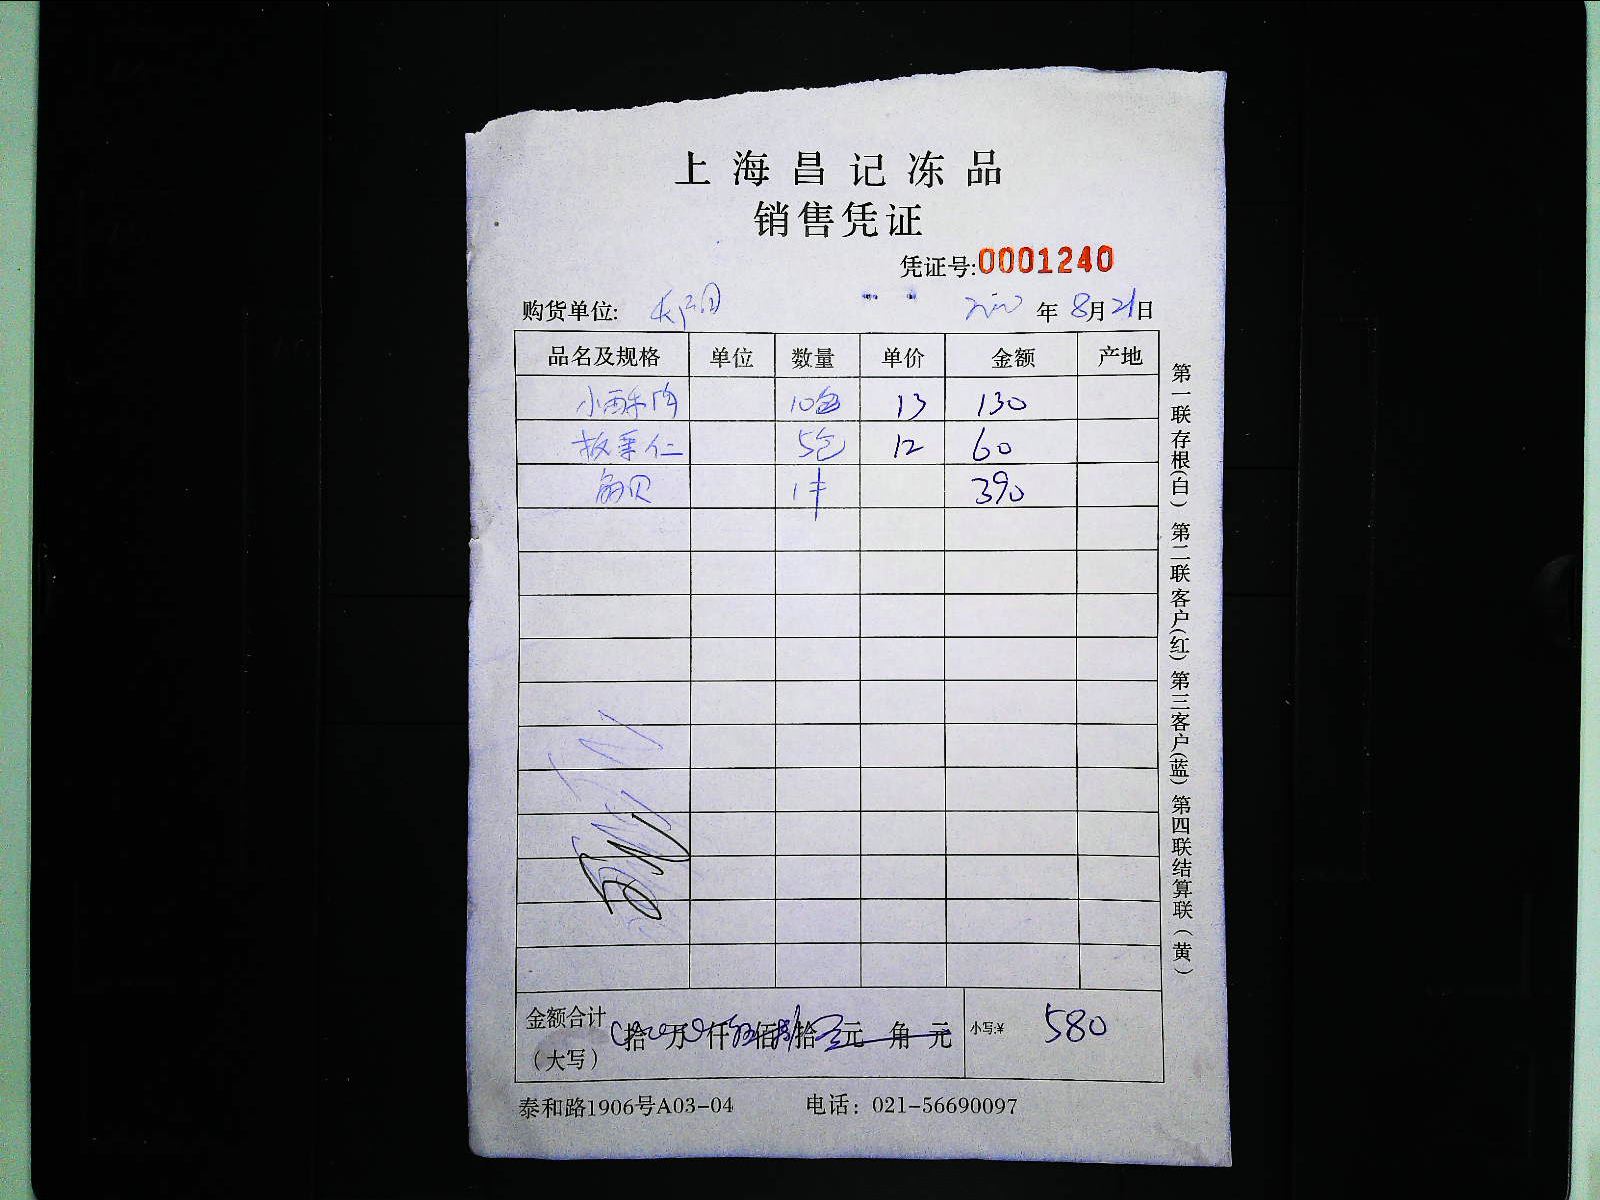 上海昌记冻品
销售凭证
凭证号:0001240
购货单位: 年8月21日
品名及规格 单位 数量 单价 金额 产地
小酥肉 10包 13 130
板栗仁 5包 12 60
贝 1件 390
金额合计(大写) 拾 万 仟 伍 佰 捌 拾 元 角 元 小写:¥ 580
泰和路1906号A03-04 电话：021-56690097
第一联存根(白) 第二联客户(红) 第三客户(蓝) 第四联结算联(黄)